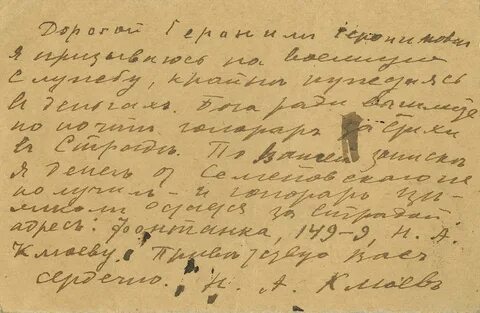 Дорогой Иероним Иеронимович
я призываюсь на военную
службу, крайне нуждаясь
в деньгах. Бога ради вышлите
по почте гонорар за стихи
в Страде. По Вашей записке
я денег от Семеновского не
получил - и гонорар
остался за Страдой.
адрес: Фонтанка, 149-9, Н. А.
Клюеву. Приветствую Вас
сердечно. Н. А. Клюевъ